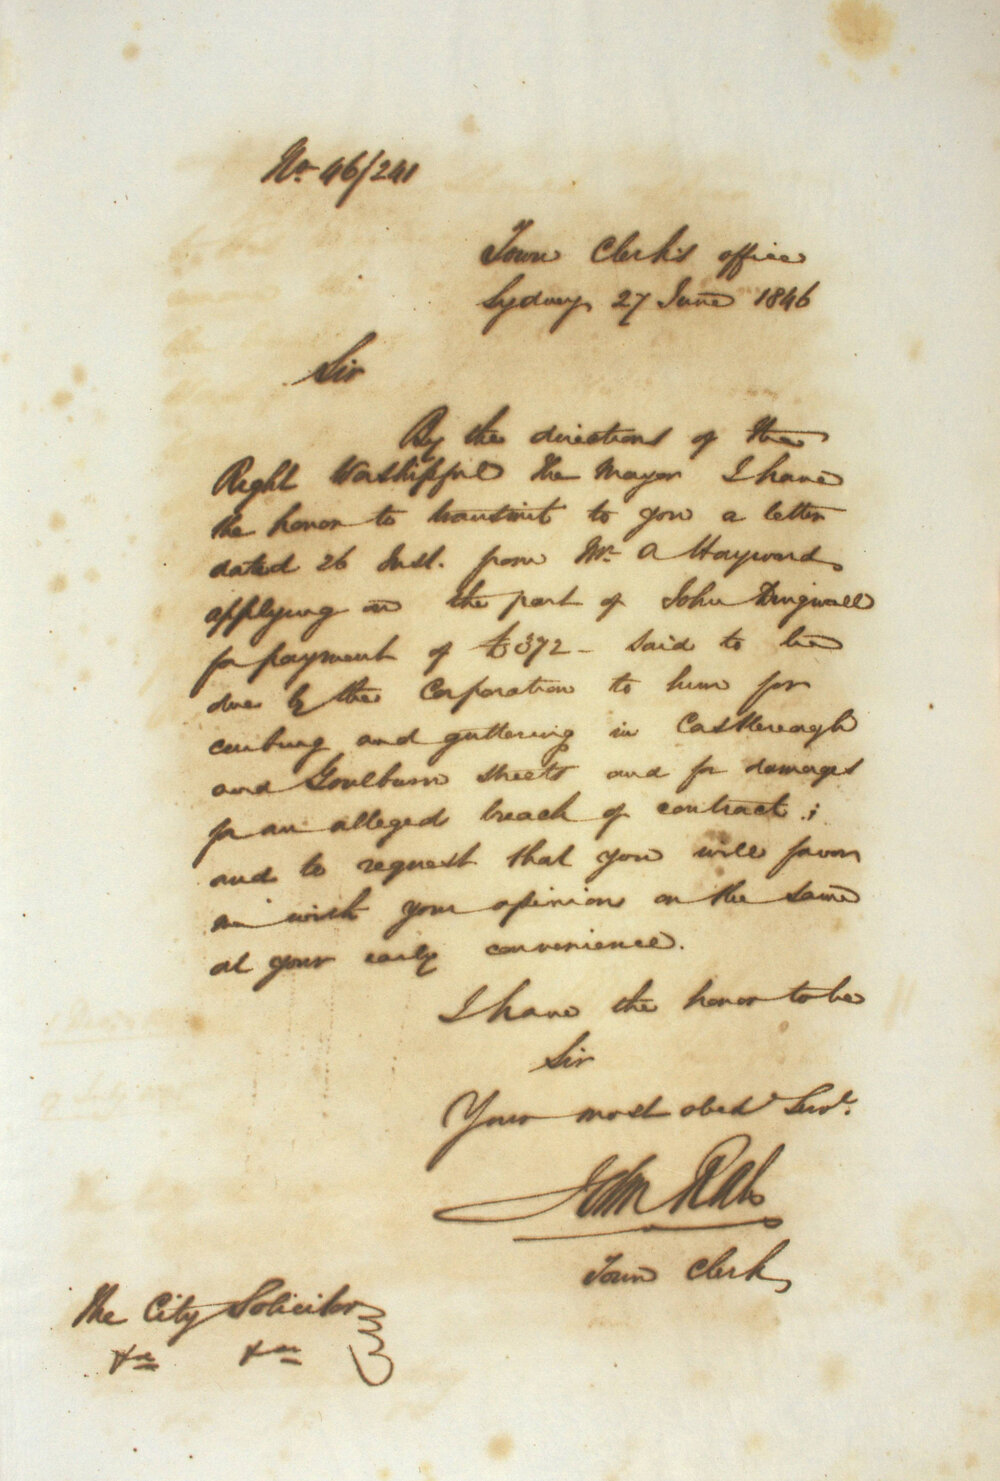 No. 46/241
Town Clerk's office
Sydney 27 June 1846
Sir
By the directions of the
Right Worshipful the Mayor I have
the honor to transmit to you a letter
dated 26 Inst. from Mr. A Hayward
applying on the part of John Dingwall
for payment of £372 - said to be
due by the Corporation to him for
curbing and guttering in Castlereagh
and Goulburn streets and for damages
for an alleged breach of contract ;
and to request that you will favor
me with your opinion on the same
at your early convenience.
I have the honor to be
Sir
Your most obed. Servt.
John Rae
Town Clerk
The City Solicitor
&c &c